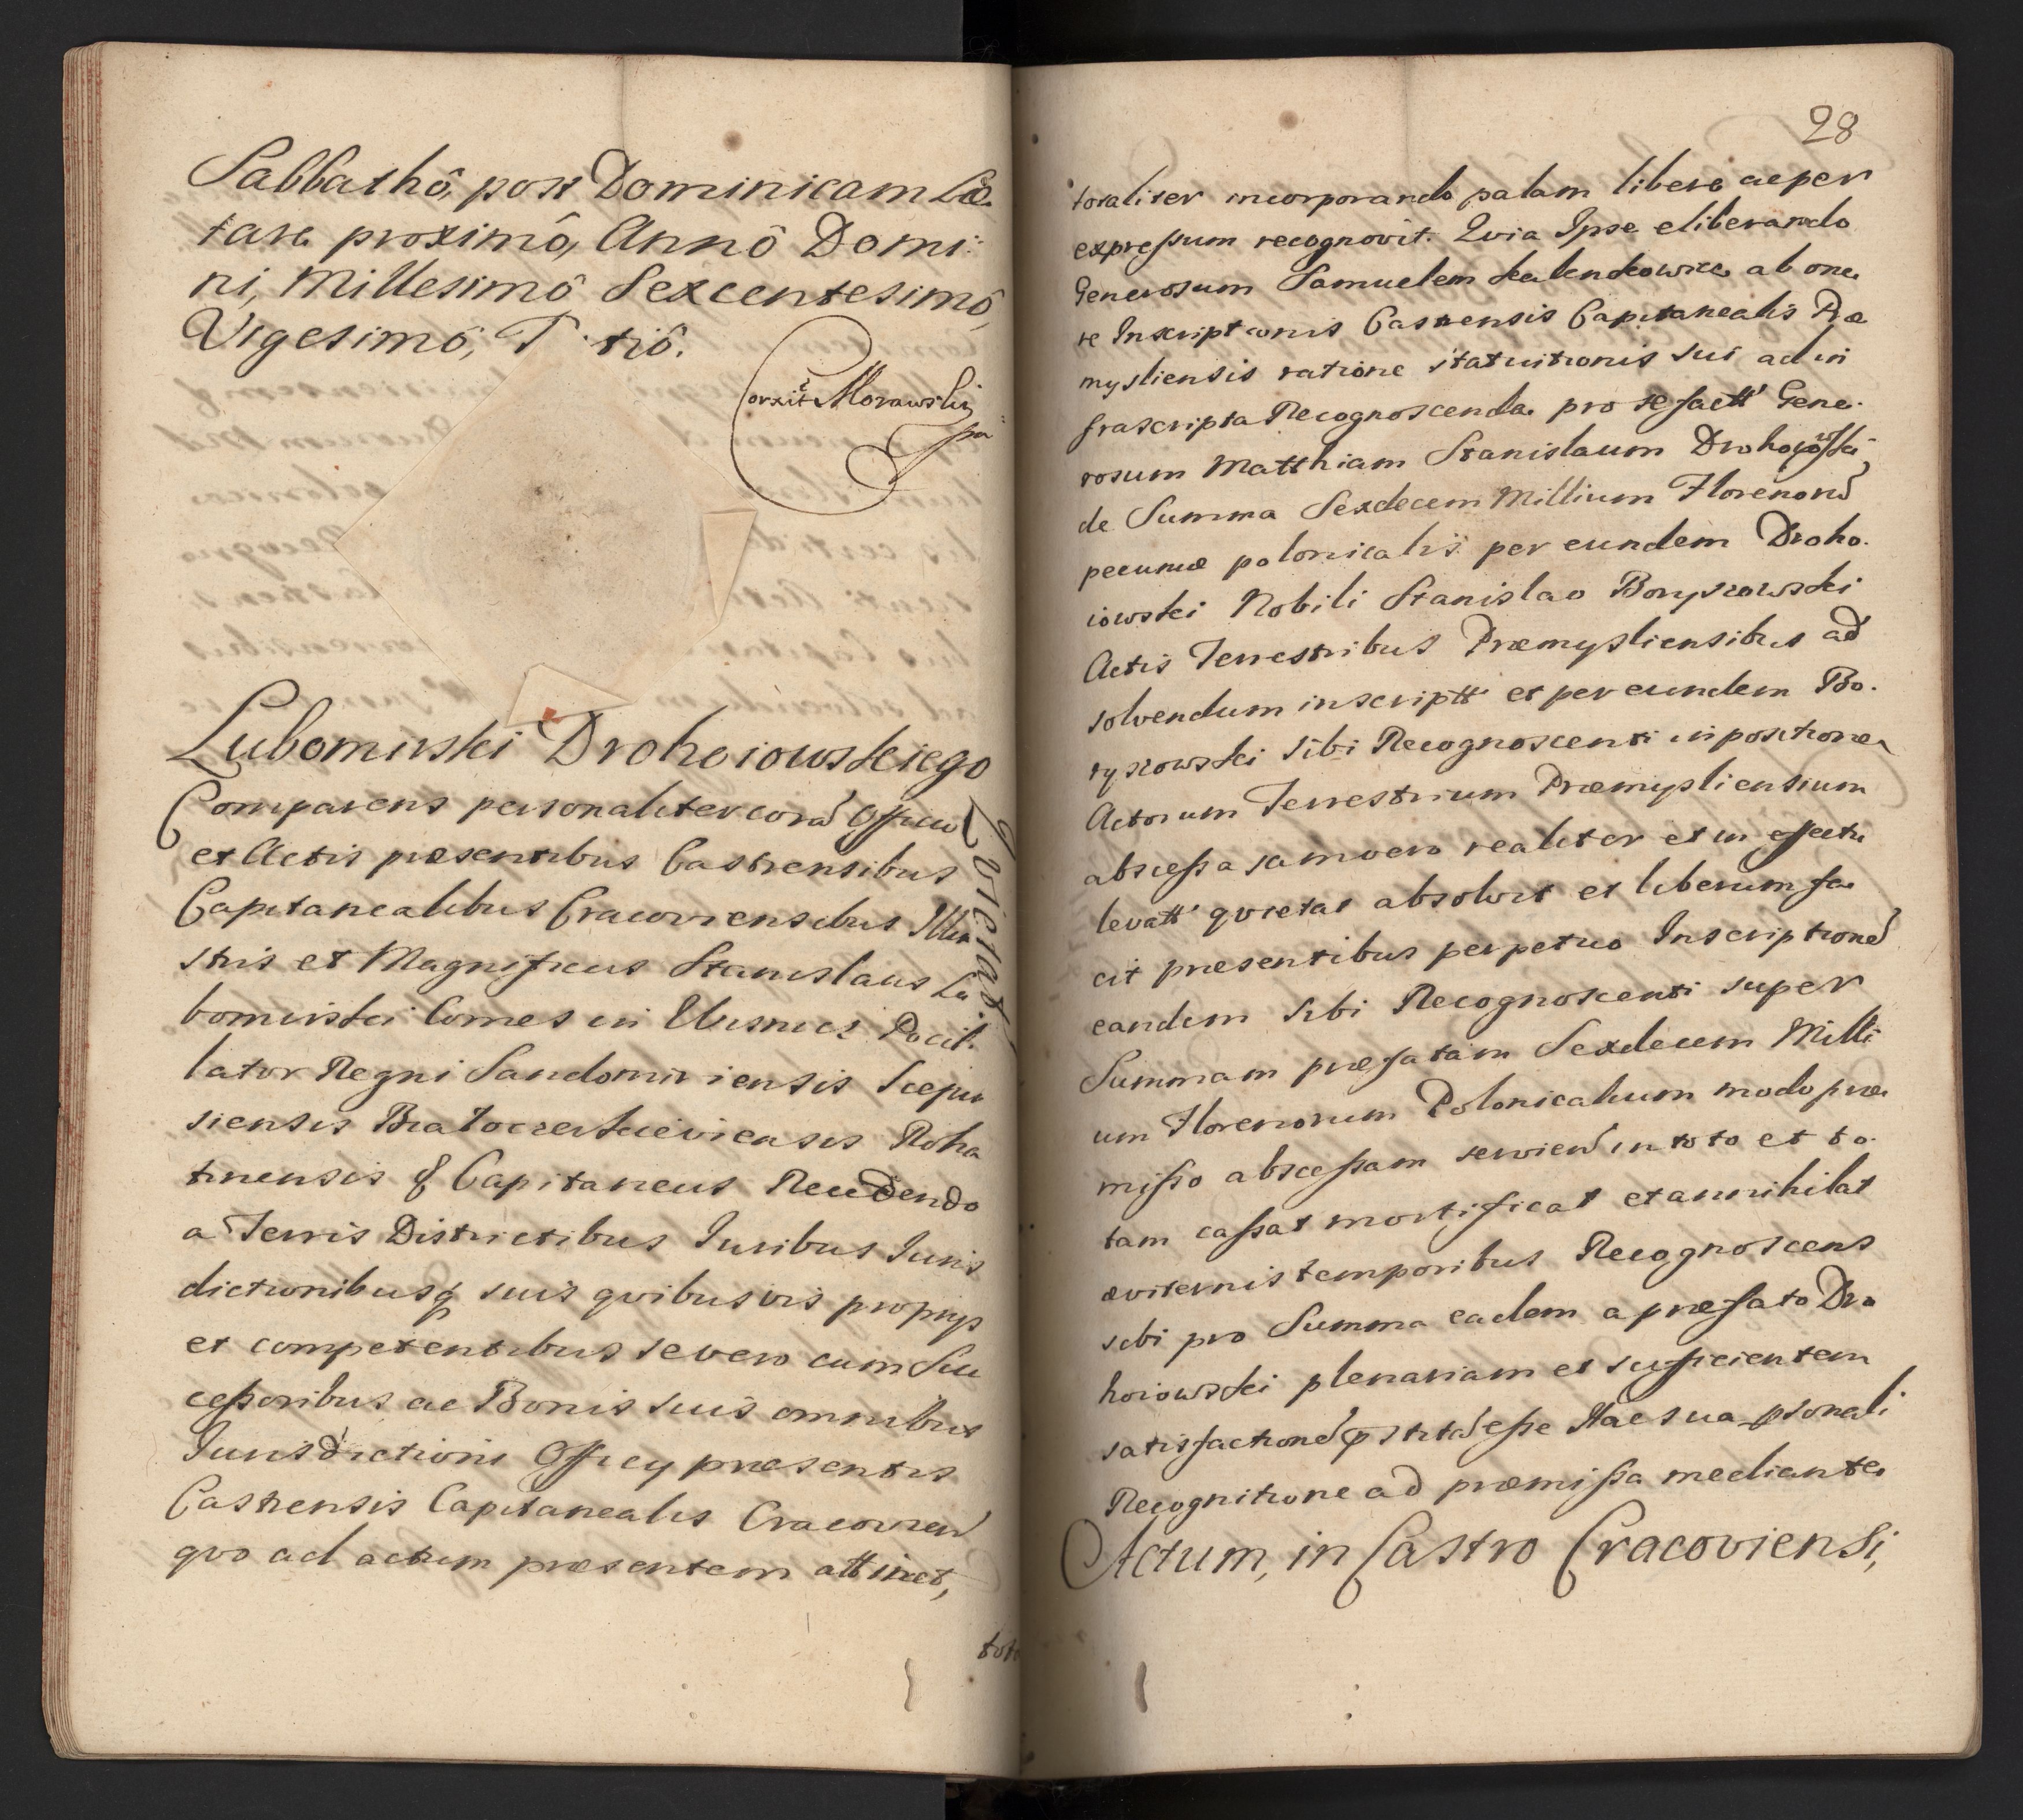 Sabbathô, post Dominicam Læ-
tare proximô, Annô Domi:
ni, Millesimô Sexcentesimô,
Vigesimô, T  tiô.
Corxit Morawski
Lubomirski Drohoiowskiego
Qvietat
Comparens personaliter corã Officio
et Actis præsentibus Castrensibus
Capitanealibus Cracoviensibus Illu
stris et Magnificus Stanislaus Lu
bomirski Comes in Wisnicz Pocil:
lator Regni Sandomiriensis Scepu
siensis Biatocerkieviensis Roha
tinensis & Capitaneus Recedendo
a Terris Districtibus Iuribus Iuris
dictionibusq suis qvibusvis proprys
et competentibus se vero cum Suc
cessoribus ac Bonis suis omnibus
Iurisdictioni Officy præsentis
Castrensis Capitanealis Cracovien
qvo ad actum præsentem attinet,
tota
28
totaliter incorporando palam libere ac per
expressum recognovit. Qvia Ipse eliberando
Generosum Samuelem ab one
re Inscriptionis Castrensis Capitanealis Præ
mysliensis ratione statuitionis sui ad in
frascripta Recognoscenda pro se factt Gene-
rosum Matthiam Stanislaum Drohoiowski
de Summa Sexdecem Millium Florenorũ
pecuniæ polonicalis per eundem Droho-
iowski Nobili Stanislao Boryszowski
Actis Terrestribus Præmysliensibus ad
solvendum inscriptt et per eundem Bo-
ryszowski sibi Recognoscenti inpositione
Actorum Terrestrium Præmysliensium
abscessa iamvero realiter et in effectu
levatt qvietat absolvit et liberum fa
cit præsentibus perpetuo Inscriptionẽ
eandem sibi Recognoscenti super
Summam præfatam Sexdecem Milli
um Florenorum Polonicalium modo præ
misso abscessam servien in toto et to-
tam cassat mortificat et annihilat
æviternis temporibus Recognoscens
sibi pro Summa eadem a præfato Dro
hoiowski plenariam et sufficientem
satisfactionẽ esse Hac sua psonali
Recognitione ad præmissa mediante
Actum, in Castro Cracoviensi,